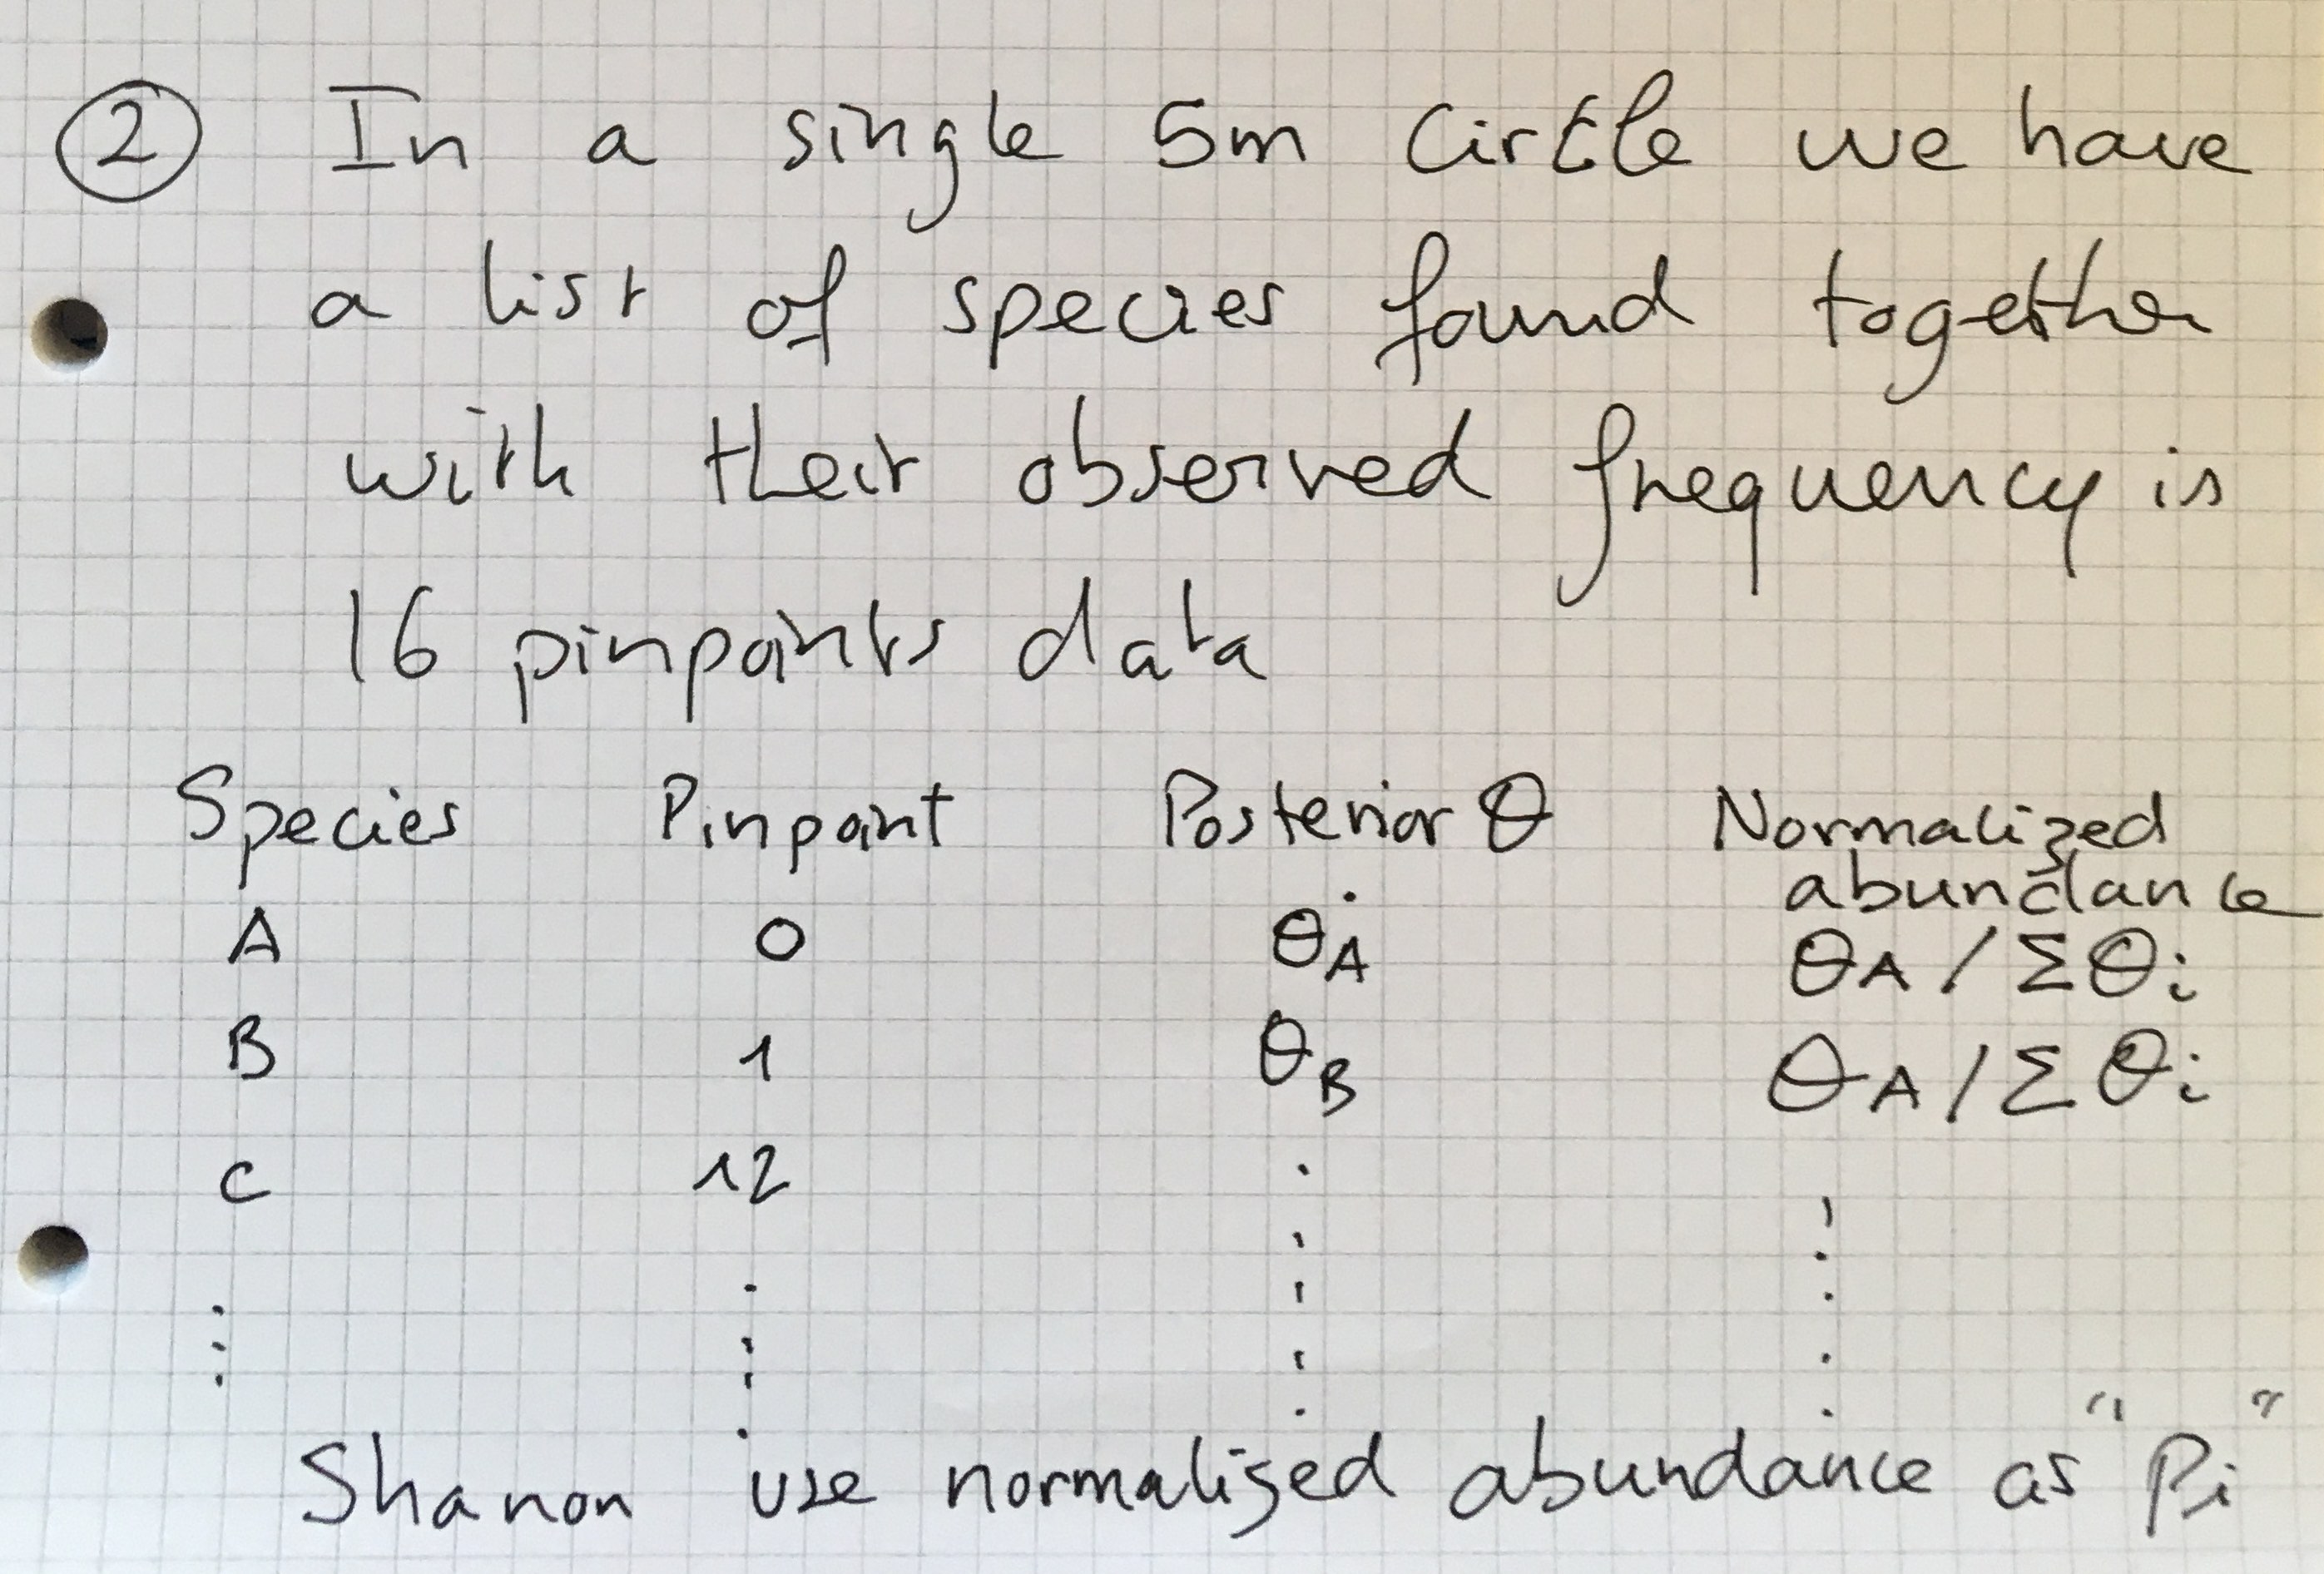 ② In a single 5m Circle we have
a list of species found together
with their observed frequency is
16 pinpoints data
Species Pinpoint Posterior θ Normalized abundance
A 0 θA θA / Σθi
B 1 θB θA / Σθi
C 12
Shanon use normalized abundance as "Pi"